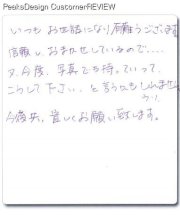 PeeksDesign CustomerREVIEW
いつもお世話になり有難うございます
信頼し、おまかせしているので....
又、今度、写真でも持っていって、
こうして下さい、と言うかもしれません
今後共、宜しくお願い致します。